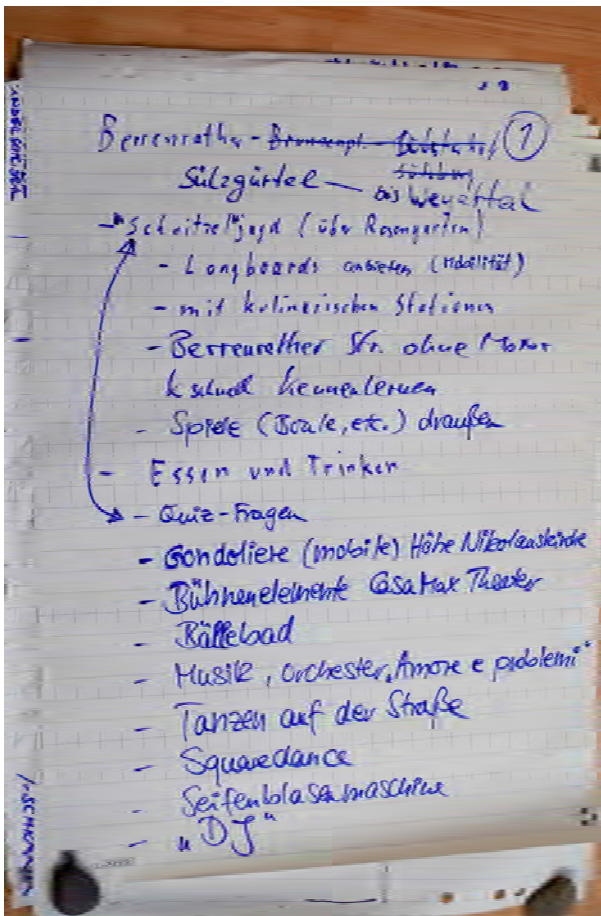 Berrenrather - /
Sülzgürtel — bis Weyertal
①
- "Schnitzel"jagd (über Rosengarten)
- Longboards anbieten (Mobilität)
- mit kulinarischen Stationen
- Berrenrather Str. ohne Motor
kennenlernen
- Spiele (Boule, etc.) draußen
- Essen und Trinken
- Quiz-Fragen
- Gondoliere (mobile) Höhe Nikolauskirche
- Bühnenelemente Casamax Theater
- Bällebad
- Musik, Orchester „Amore e problemi"
- Tanzen auf der Straße
- Squaredance
- Seifenblasenmaschine
- „DJ"